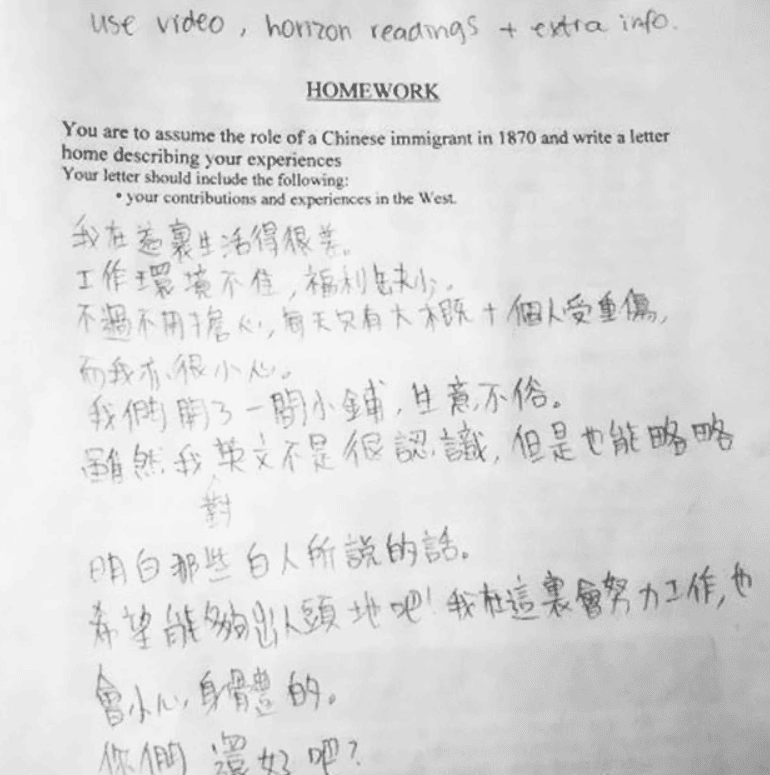 use video, horizon readings + extra info.
HOMEWORK
You are to assume the role of a Chinese immigrant in 1870 and write a letter
home describing your experiences
Your letter should include the following:
• your contributions and experiences in the West.
我在這裏生活得很差。
工作環境不佳，福利缺少。
不過不用擔心，每天只有大概十個人受重傷，
而我亦很小心。
我們開了一間小鋪，生意不俗。
雖然我英文不是很認識，但是也能略略
對
明白那些白人所說的話。
希望能夠出人頭地吧！我在這裏會努力工作，也
會小心身體的。
你們還好吧？